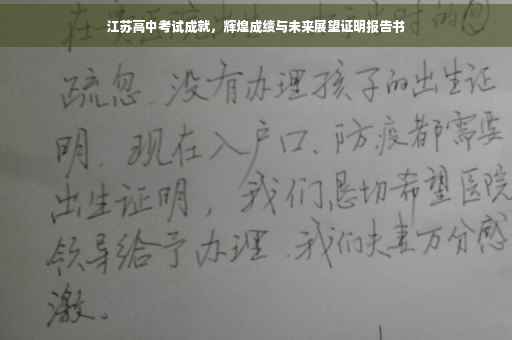 江苏高中考试成就，辉煌成绩与未来展望证明报告书
疏忽、没有办理孩子的出生证
明、现在入户口、防疫都需要
出生证明，我们恳切希望医院
领导给予办理、我们夫妻万分感
激。